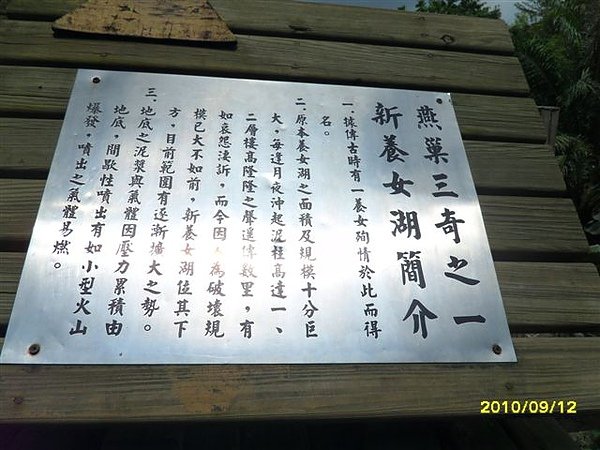 燕巢三奇之一
新養女湖簡介
一.據傳古時有一養女殉情於此而得
名。
二.原本養女湖之面積及規模十分巨
大，每逢月夜沖起泥柱高達一、
二層樓高隆隆之聲遠傳數里，有
如哀怨淒訴，而今因 為破壞規
模已大不如前，新養女湖位其下
方，目前範圍有逐漸擴大之勢。
三.地底之泥漿與氣體因壓力累積由
地底，間歇性噴出有如小型火山
爆發，噴出之氣體易燃。
2010/09/12